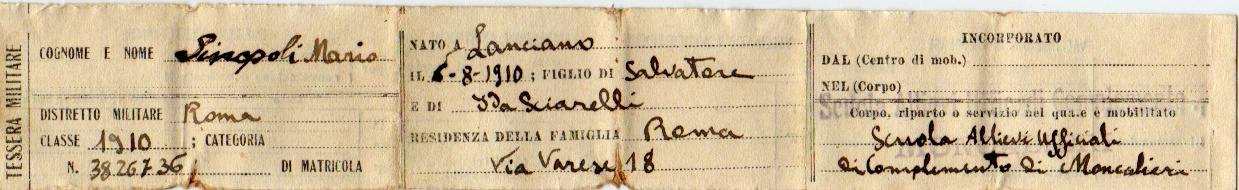 TESSERA MILITARE
COGNOME E NOME Sinopoli Mario
DISTRETTO MILITARE Roma
CLASSE 1910 ; CATEGORIA
N. 3826736 DI MATRICOLA
NATO A Lanciano
IL 6-8-1910 ; FIGLIO DI Salvatore
E DI Ida Sciarelli
RESIDENZA DELLA FAMIGLIA Roma
Via Varese 18
INCORPORATO
DAL (Centro di mob.)
NEL (Corpo)
Corpo, riparto o servizio nel quale è mobilitato
Scuola Allievi Ufficiali
di Complemento di Moncalieri